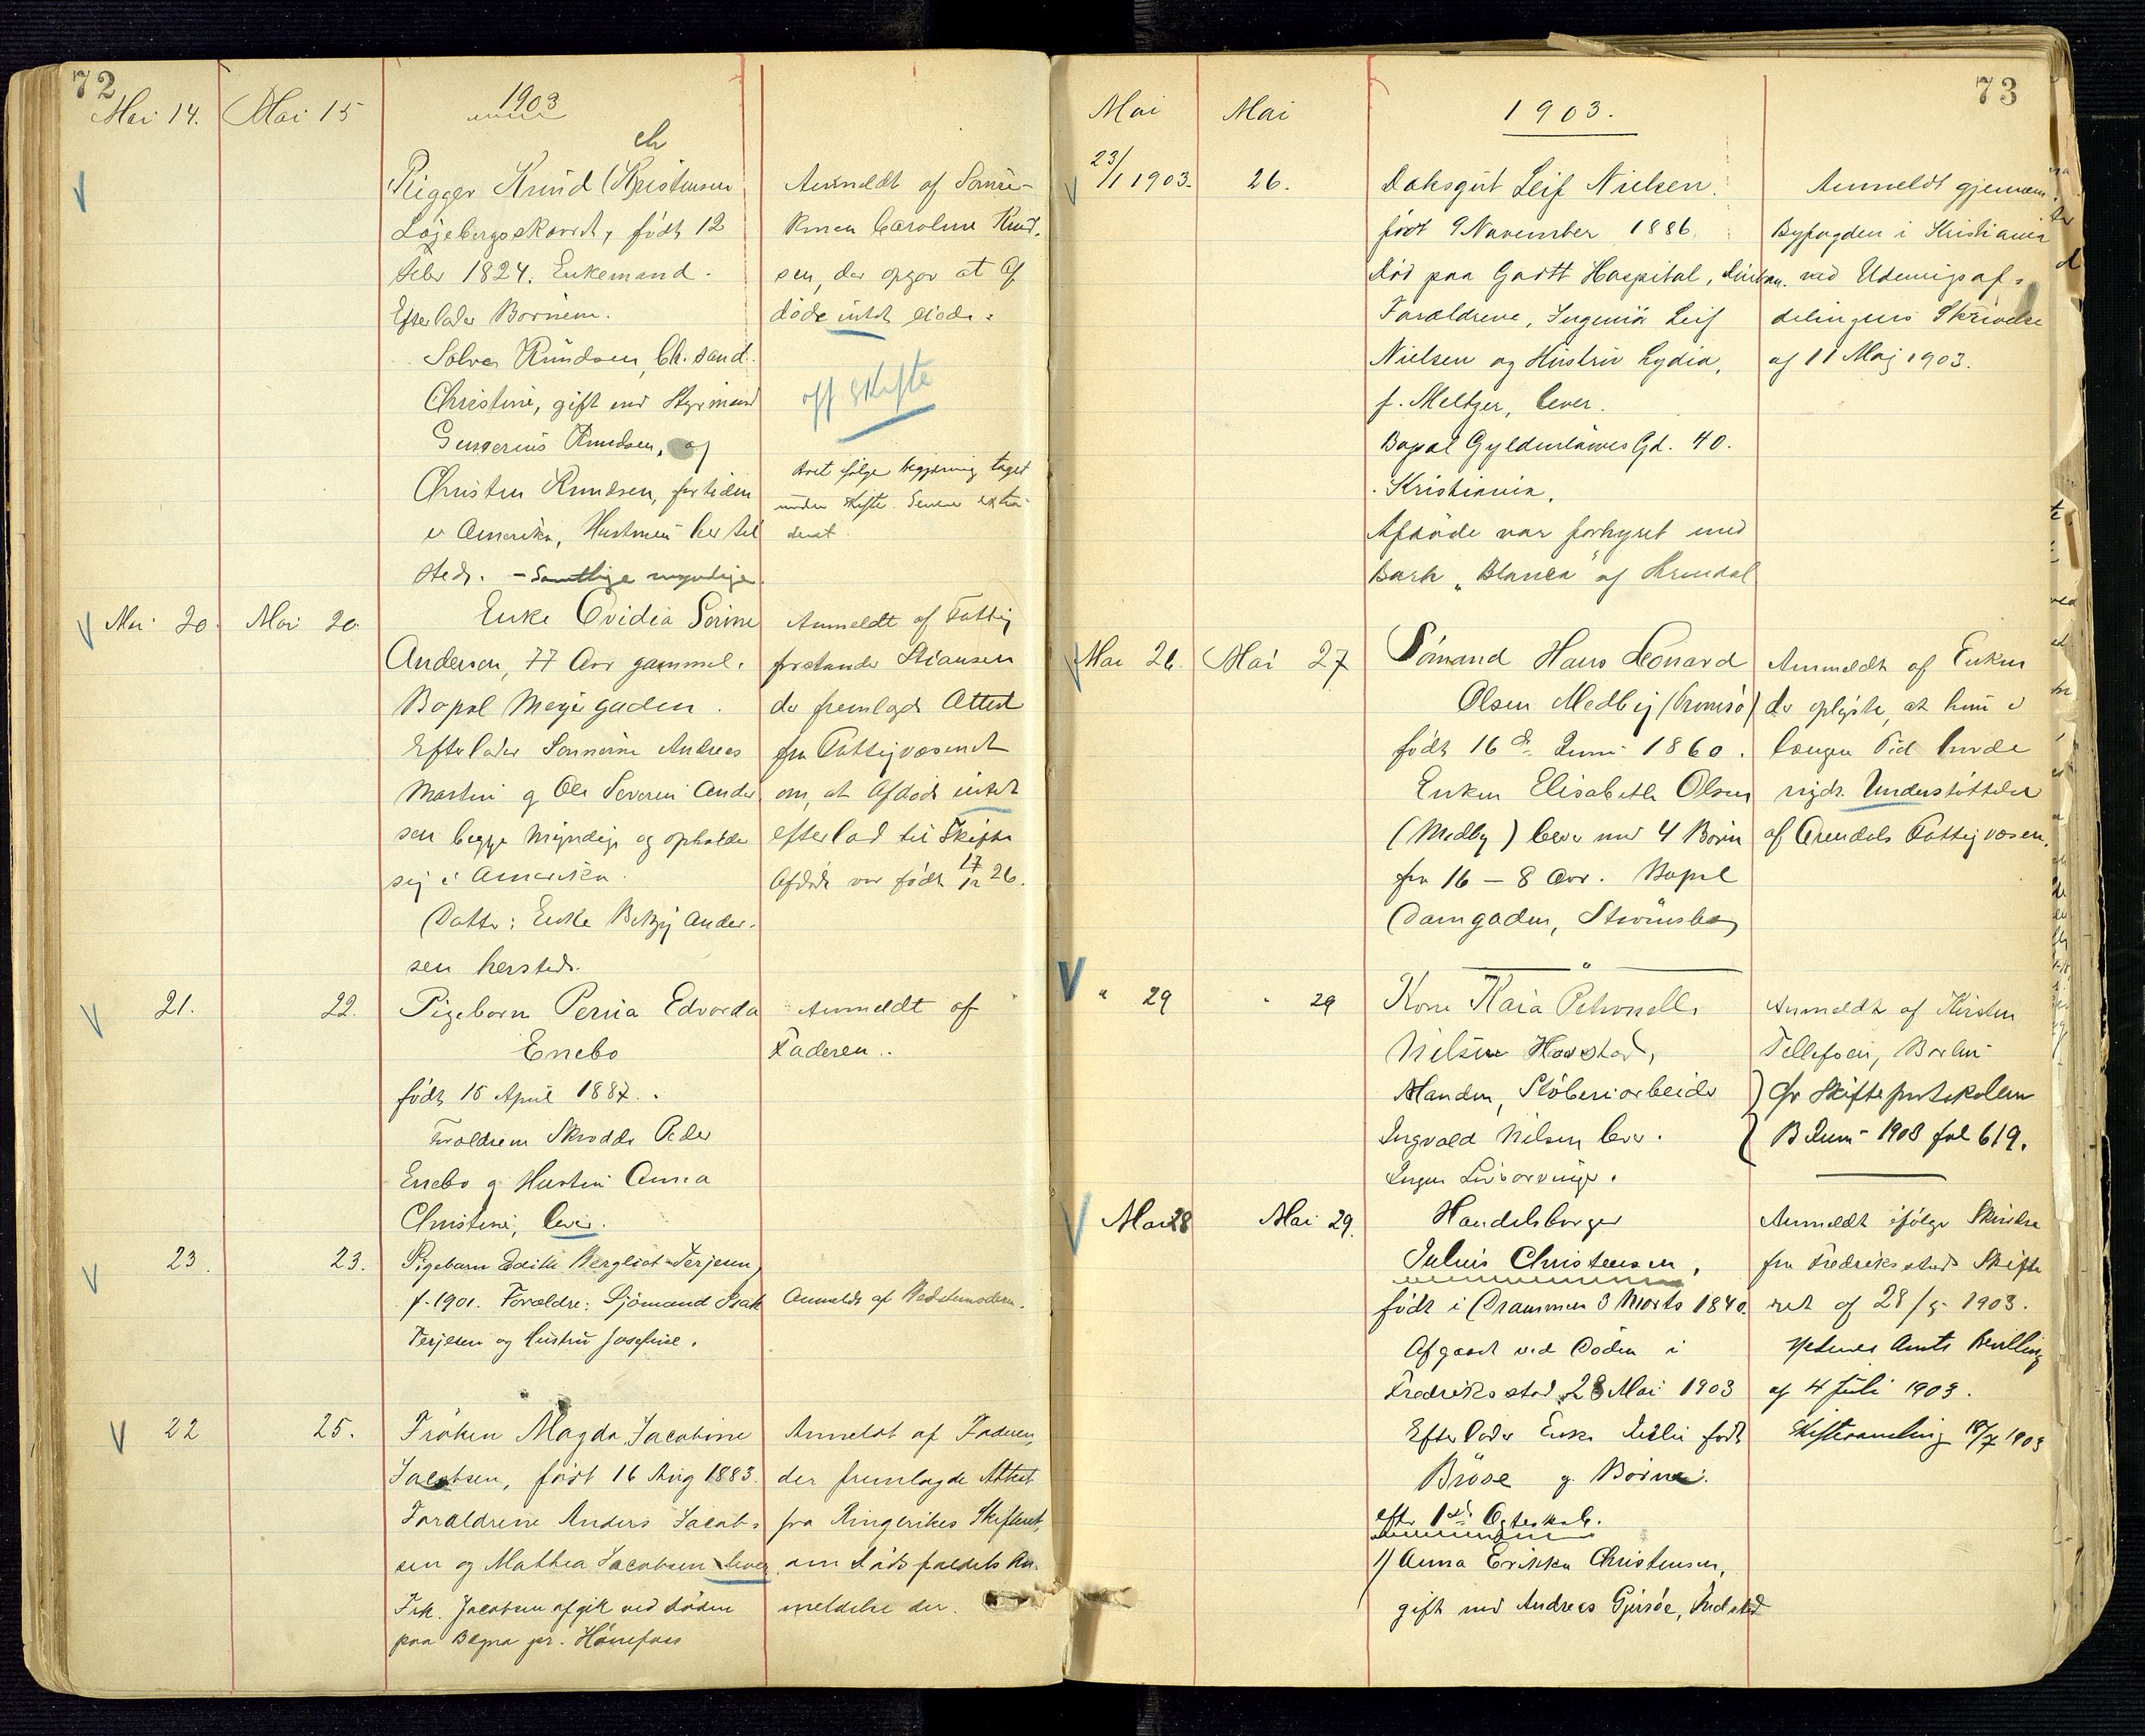 72
Mai 14. Mai 15
1903
ch
Rigger Knud (Kristensen
Løjebergsskaret, født 12
Febr 1824. Enkemand.
Efterlader Børnene.
Solve Knudsen, Ch. sand.
Christine, gift med Styrmand
Knudsen, og
Christen Knudsen, for tiden
i Amerika, Hustruen her til
steds. - Samtlige myndige.
Anmeldt af Sønne-
konen Caroline Knud-
sen, der opgav at Af
døde intet eiede.
off skifte
under skifte. Senere extra-
deret.
Mai 20. Mai 20.
Enke Ovidia Sørine
Andersen, 77 Aar gammel.
Bopæl Meyergaden.
Efterlader Sønnerne Andreas
Martin og Ole Severin Ander
sen begge Myndige og opholder
sig i Amerika.
Datter: Enke Betzy Ander-
sen hersteds.
Anmeldt af Fattig
forstander Stiansen
der fremlagde Attest
fra Fattigvæsenet
om, at Afdøde intet
efterlod til Skifte
Afdøde var født 17/12 26.
21. 22.
Pigebarn Perna Edvarda
Enebo
født 15 April 1887.
Forældrene Skrædder Peder
Enebo og Hustru Anna
Christine, lever.
Anmeldt af
Faderen.
23. 23.
Pigebarn Edith Bergliot Terjesen,
f. 1901. Forældre: Sjømand Isak
Terjesen og Hustru Josefine.
Anmeldt af Bedstemoderen.
22 25.
Frøken Magda Jacobine
Jacobsen, født 16 Aug 1883.
Forældrene Anders Jacob-
sen og Mathea Jacobsen lever
Frk. Jacobsen afgik ved døden
paa Begna pr. Hønefoss
Anmeldt af Faderen,
der fremlagde Attest
fra Ringerikes Skifteret,
om Dødsfaldets An-
meldelse der.
73
Mai Mai
1903.
23/1 1903. 26.
Daksgut Leif Nielsen.
født 9 November 1886.
Død paa Gartt Hospital, Durban.
Forældrene, Ingeniør Leif
Nielsen og Hustru Lydia,
f. Meltzer, lever.
Bopæl Gyldenløwes Gd. 40.
Kristiania.
Afdøde var forhyret med
Bark "Blanca" af Arendal
Anmeldt gjennem
Byfogden i Kristiania
ved Udenrigsaf-
delingens Skrivelse
af 11 Maj 1903.
Mai 26. Mai 27
Sømand Hans Leonard
Olsen Medby (Tromsø)
født 16de Juni 1860.
Enken Elisabeth Olsen
(Medby) lever med 4 Børn
fra 16 - 8 Aar. Bopæl
Damgaden, Strømsbo
Anmeldt af Enken
der oplyste, at hun i
længere Tid havde
nydt Understøttelse
af Arendals Fattigvæsen.
" 29 " 29
Kone Kaia Petronelle
Nilsen Havstad,
Manden, Støberiarbeider
Ingvald Nilsen lever.
Ingen Livsarvinge.
Anmeldt af Kirsten
Tellefsen, Barbu
Cfr Skifteprotokollen
B Juni 1903 fol 619.
Mai 28 Mai 29.
Handelsborger
Julius Christensen,
født i Drammen 3 Marts 1840.
Afgaaet ved Døden i
Fredriksstad 28 Mai 1903
Efterlader Enke født
Bruse og Børnene:
efter 1ste Ægteskab.
1) Anna Erikka Christensen,
gift med Andreas Gjersøe,
Anmeldt ifølge Skrivelse
fra Fredriksstads Skifte
ret af 28/5 1903.
Nedenes Amts Bevilling
af 4 Juli 1903.
Skiftesamling 18/7 1903